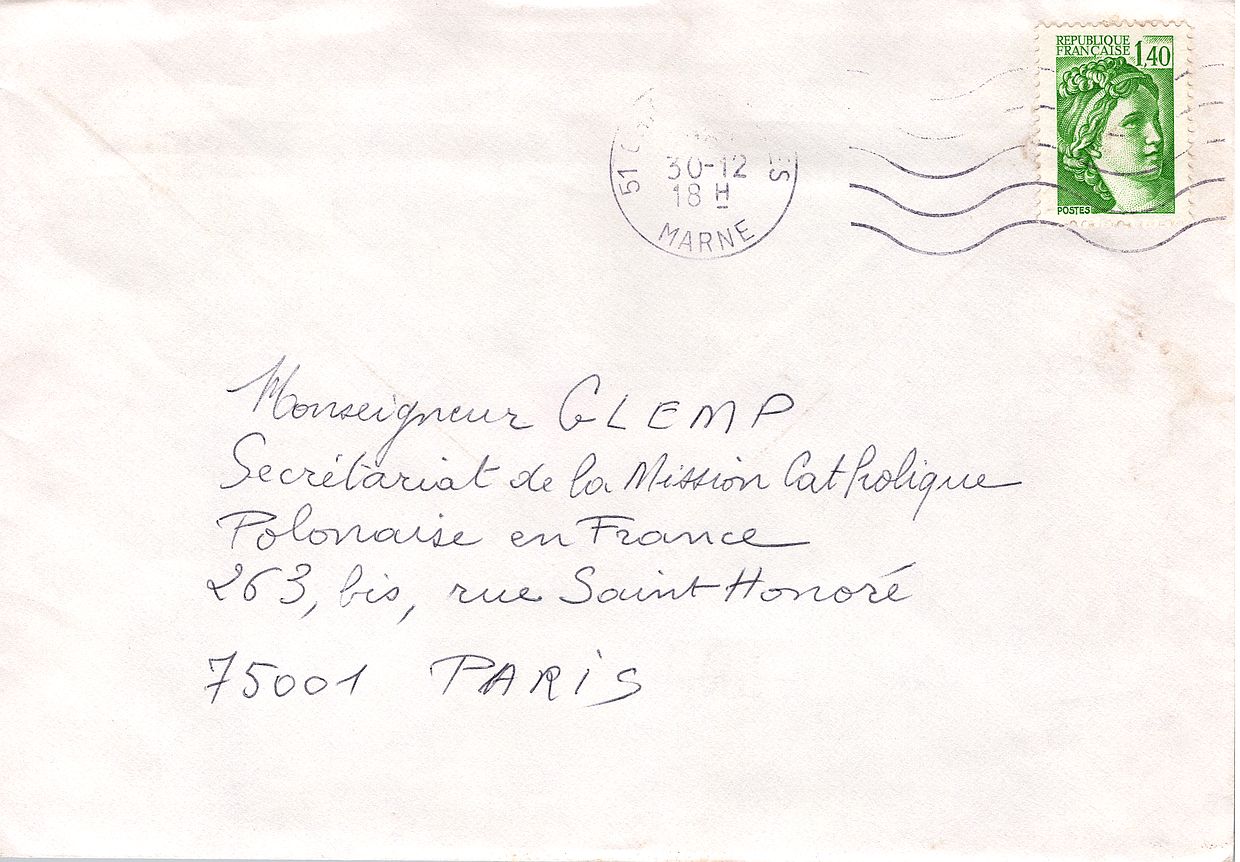 REPUBLIQUE
FRANÇAISE 1,40
POSTES
51
30-12
18 H
MARNE
Monseigneur GLEMP
Secrétariat de la Mission Catholique
Polonaise en France
263, bis, rue Saint Honoré
75001 PARIS